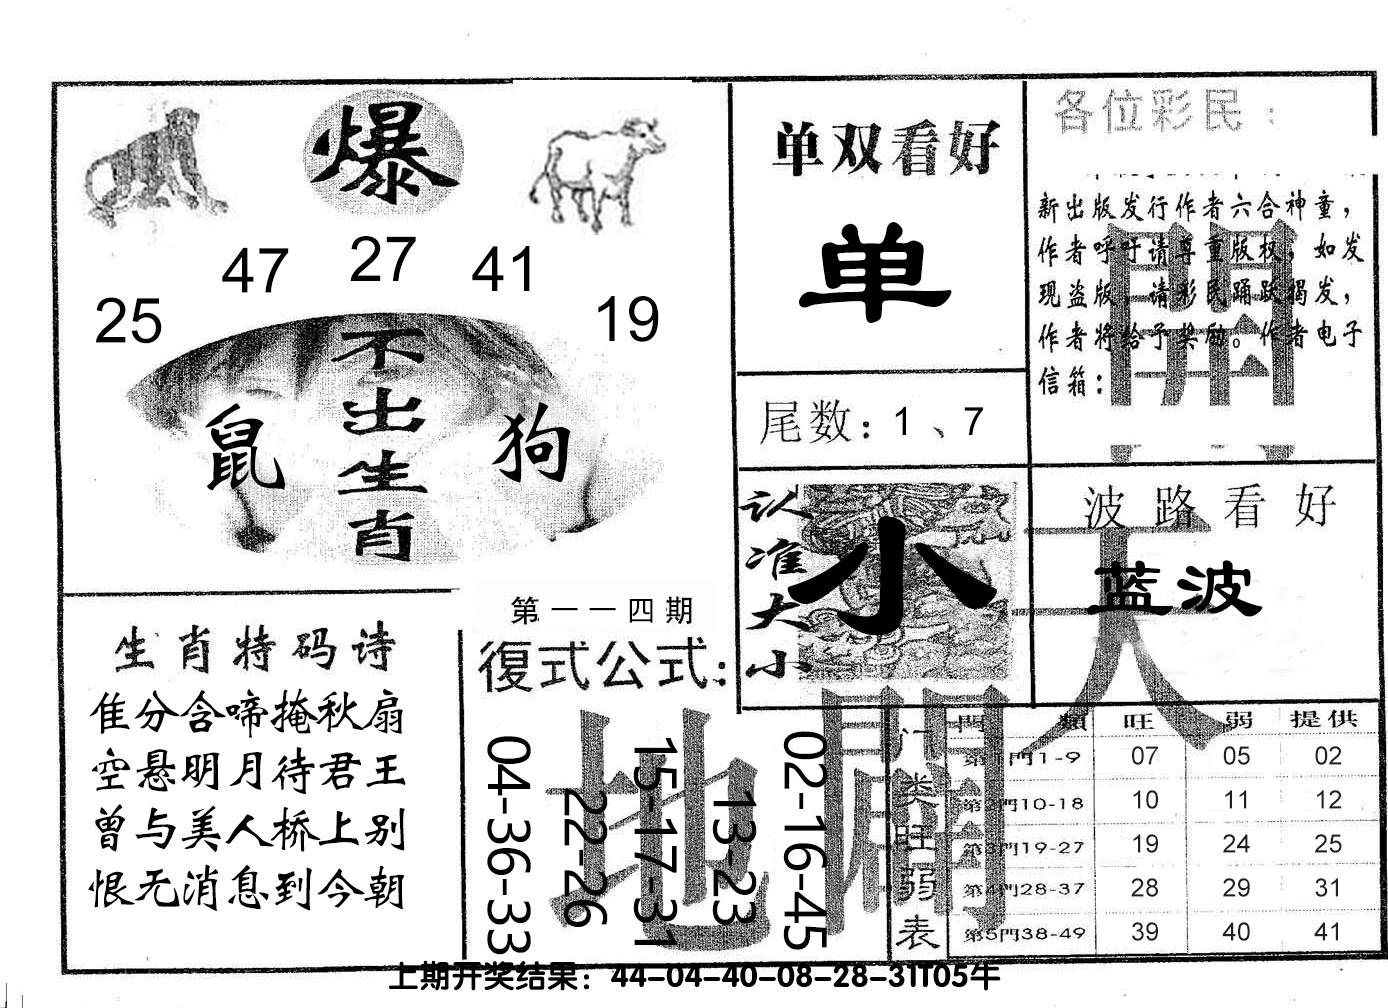 爆
47 27 41
25 19
不出生肖
鼠
狗
生肖特码诗
隹分含啼掩秋扇
空悬明月待君王
曾与美人桥上别
恨无消息到今朝
第一一四期
復式公式：
04-36-33
22-26
15-17-31
13-23
02-16-45
单双看好
单
尾数：1、7
认准大小
小
各位彩民：
新出版发行作者六合神童，
作者呼吁请尊重版权，如发
现盗版，请彩民踊跃揭发，
作者将给予奖励。作者电子
信箱：
波路看好
蓝波
天
地
開
门类旺弱表
門類 旺 弱 提供
第1門1-9 07 05 02
第2門10-18 10 11 12
第3門19-27 19 24 25
第4門28-37 28 29 31
第5門38-49 39 40 41
上期开奖结果：44-04-40-08-28-31T05牛